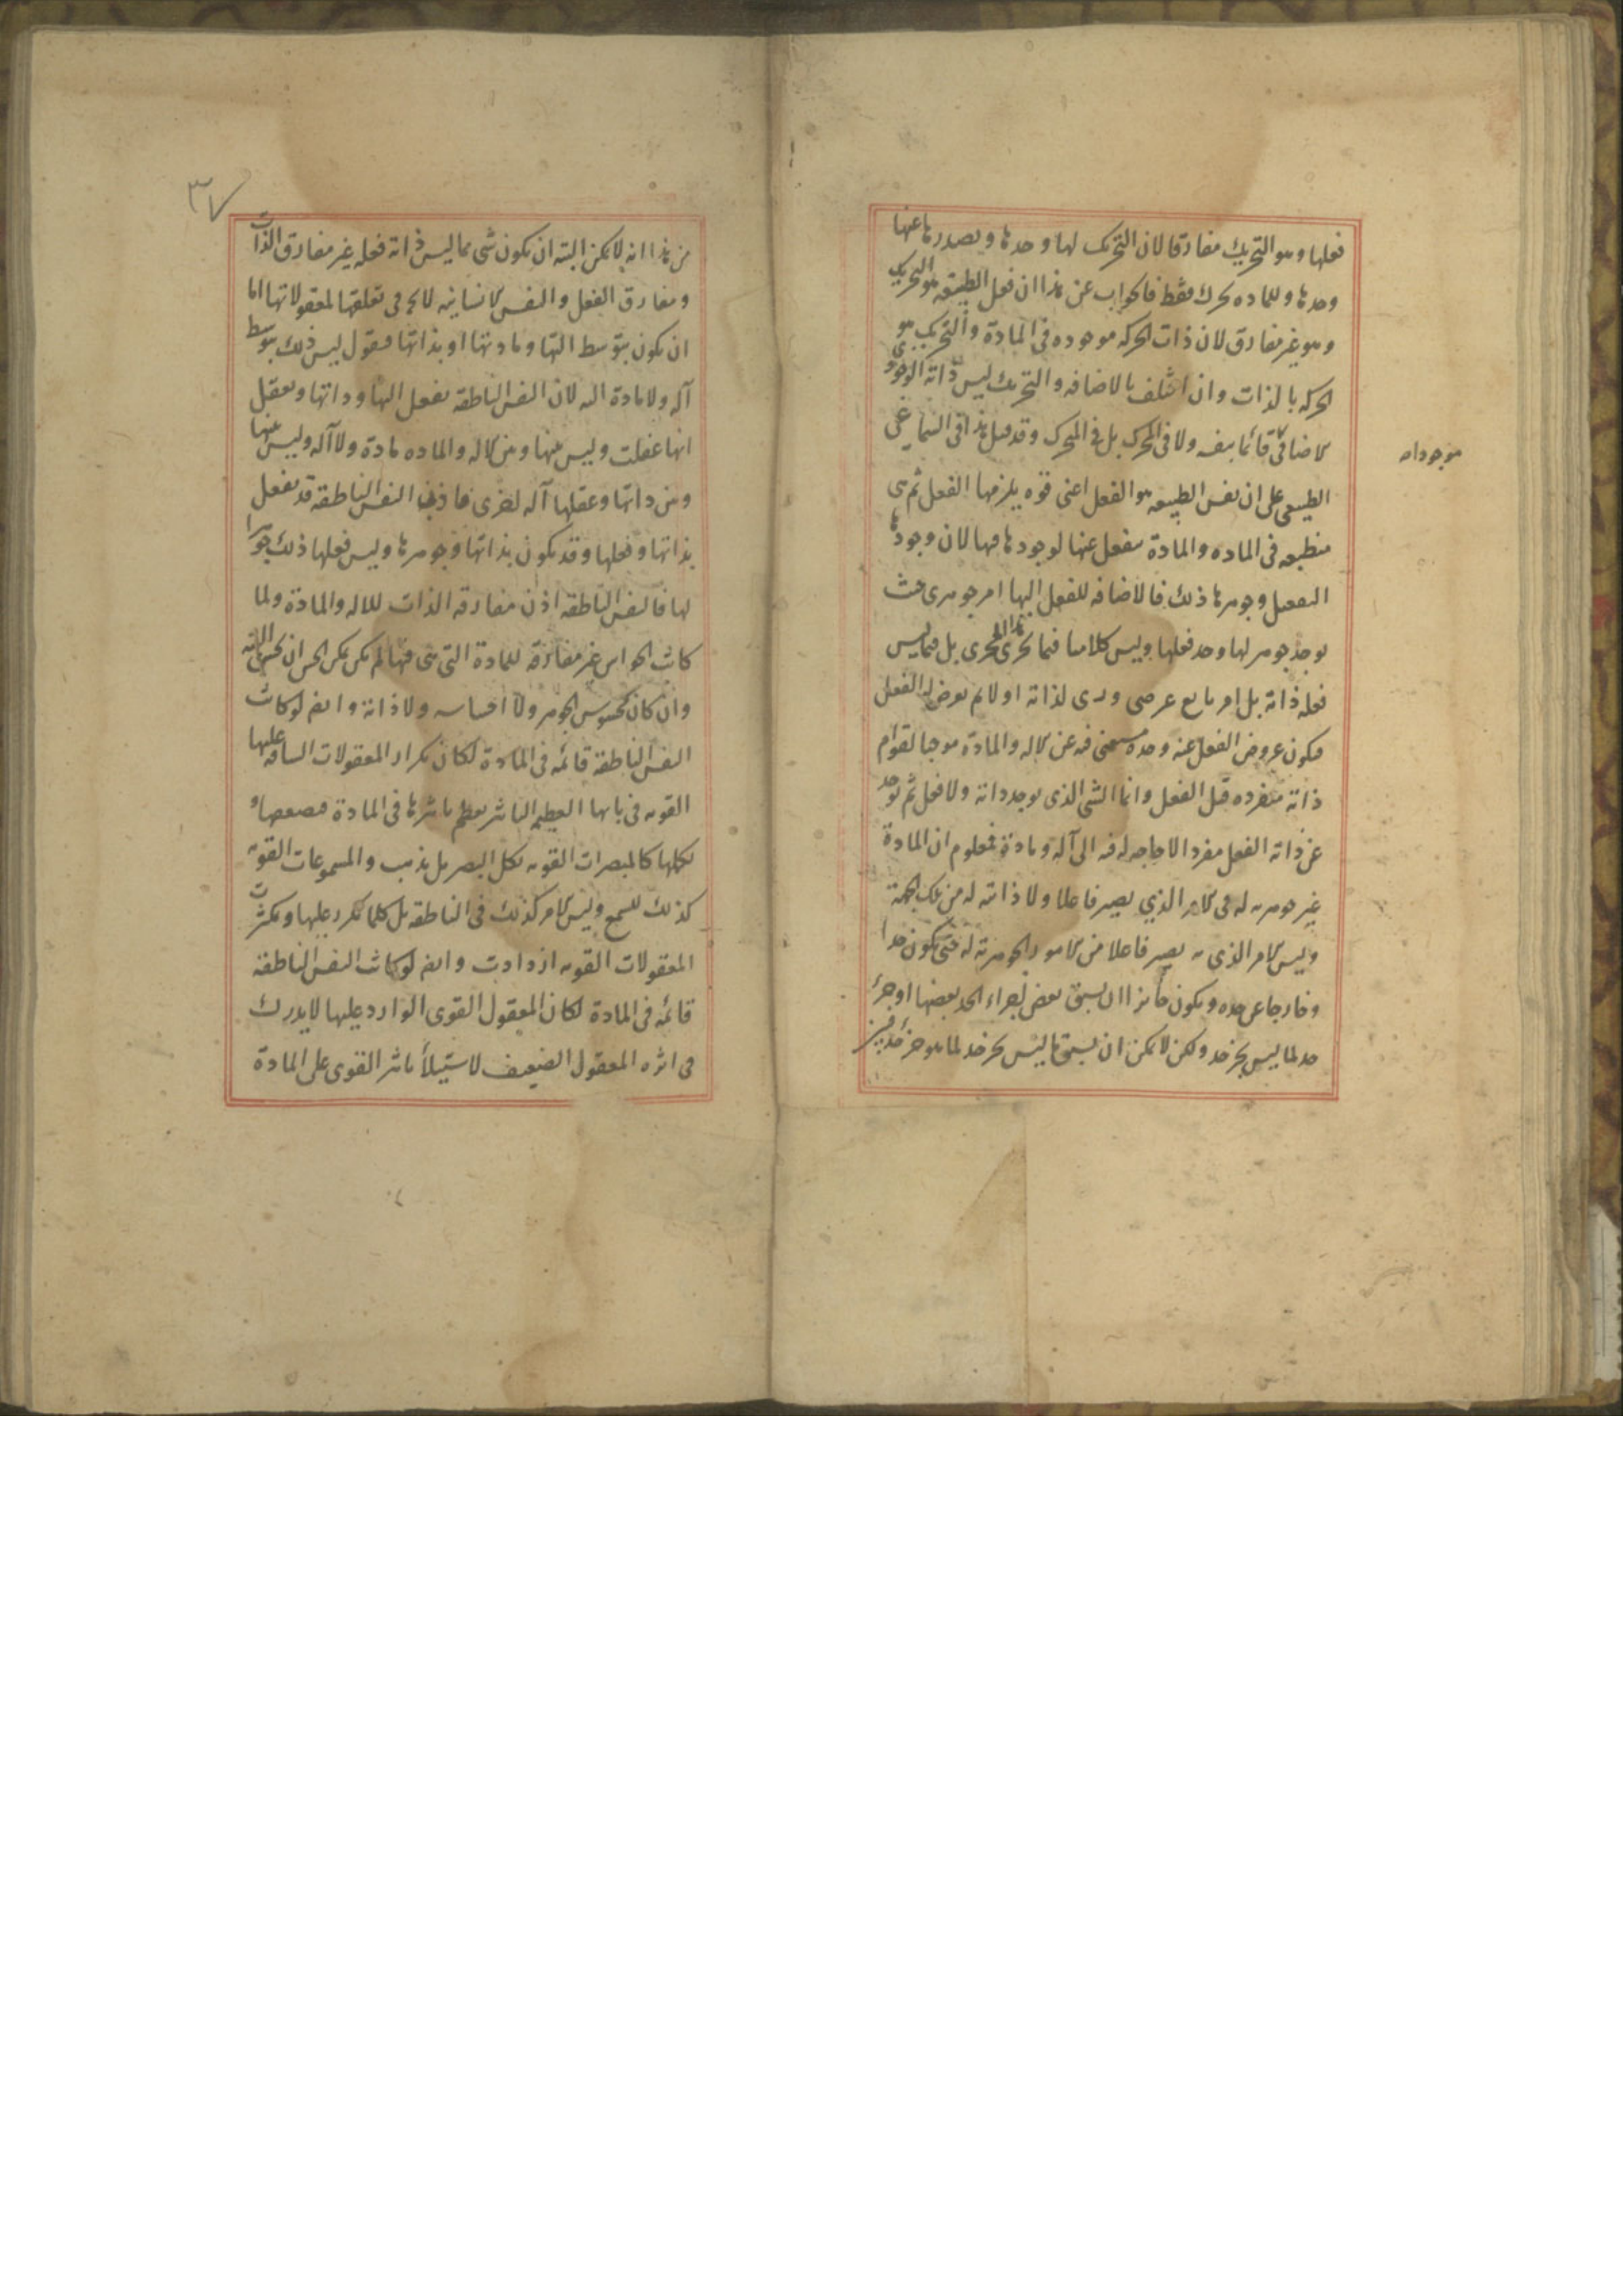 فعلها وهو التحريك مفارقا لان التحريك لها وحدها ويصدر ها عنها
وحدها وللماده تحرك فقط فالجواب عن هذا ان فعل الطبيعه هو التحريك
وهو غير مفارق لان ذات الحركه موجوده فى المادة والتحريك هو
الحركه بالذات وان اختلف بالاضافه والتحريك ليس ذاته الوجودى
الاضافى قائما بنفسه ولا فى المحرك بل فى المتحرك وقد قيل هذا فى السماع
موجودامه
الطبيعى على ان نفس الطبيعه هو الفعل اعنى قوه يلزمها الفعل ثم هى
منطبعه فى الماده والمادة تنفعل عنها لوجودها فيها لان وجودها
وجوهرها ذلك فالاضافه للفعل اليها امر جوهرى حيث
يوجد جوهر لها وجد فعلها وليس كلامنا فيما يجرى هذا المجرى بل فيما ليس
فعله ذاته بل امر تابع عرضى لذاته اولا ثم يعرض له الفعل
فيكون عروض الفعل عنه وحده فيه عن الاله والمادة موجبا لقوام
ذاته منفرده قبل الفعل وانما الشى الذى يوجد ذاته ولا فعل ثم يوجد
عن ذاته الفعل مفردا لا حاجه له فيه الى آله ومادة فمعلوم ان المادة
غير جوهريه له فى الامر الذي يصير فاعلا ولا ذاته له من تلك الجهة
وليس الامر الذى به يصير فاعلا من الامور الجوهرية له حتى يكون حدا
وخارجا عن حده ويكون جائزا ان يسبق بعض اجزاء الحد بعضها او جزء
حد لما ليس بجزء حد ولكن لا يمكن ان يسبق ما ليس بجزء حد لما هو جزء حد
٣٧
من هذا انه لا يمكن البته ان يكون شى مما ليس ذاته فعله غير مفارق الذات
ومفارق الفعل والنفس الانسانيه لا يخ فى تعلقها لمعقولاتها اما
ان يكون بتوسط التها ومادتها او بذاتها فنقول ليس ذلك بتوسط
آله ولا مادة البته لان النفس الناطقه تفعل التها وذاتها وتعقل
انها عقلت وليس بينها وبين الاله والماده مادة ولا آله وليس بينها
وبين ذاتها وعقلها آله اخرى فاذن النفس الناطقه قد تفعل
بذاتها وفعلها وقد يكون بذاتها وجوهرها وليس فعلها ذلك جوهرا
لها فالنفس الناطقه اذن مفارقه الذات للاله والمادة ولما
كانت الحواس غير مفارقة للمادة التى هى فيها لم يكن يمكن الحس ان يحس بالته
وان كان محسوس الجوهر ولا احساسه ولا ذاته وايضا لو كانت
النفس الناطقة قائمه فى المادة لكان تكرار المعقولات الشاقه عليها
القويه فى بابها العظيم التاثير يعظم تاثيرها فى المادة فيضعفها و
يكلها كالمبصرات القويه يكل البصر بل يذهب والمسموعات القويه
كذلك للسمع وليس الامر كذلك فى الناطقه بل كلما تكرر عليها وتكثرت
المعقولات القويه ازدادت وايضا لو كانت النفس الناطقة
قائمه فى المادة لكان المعقول القوى الوارد عليها لا يدرك
فى اثره المعقول الضعيف لاستيلاء تاثير القوى على المادة